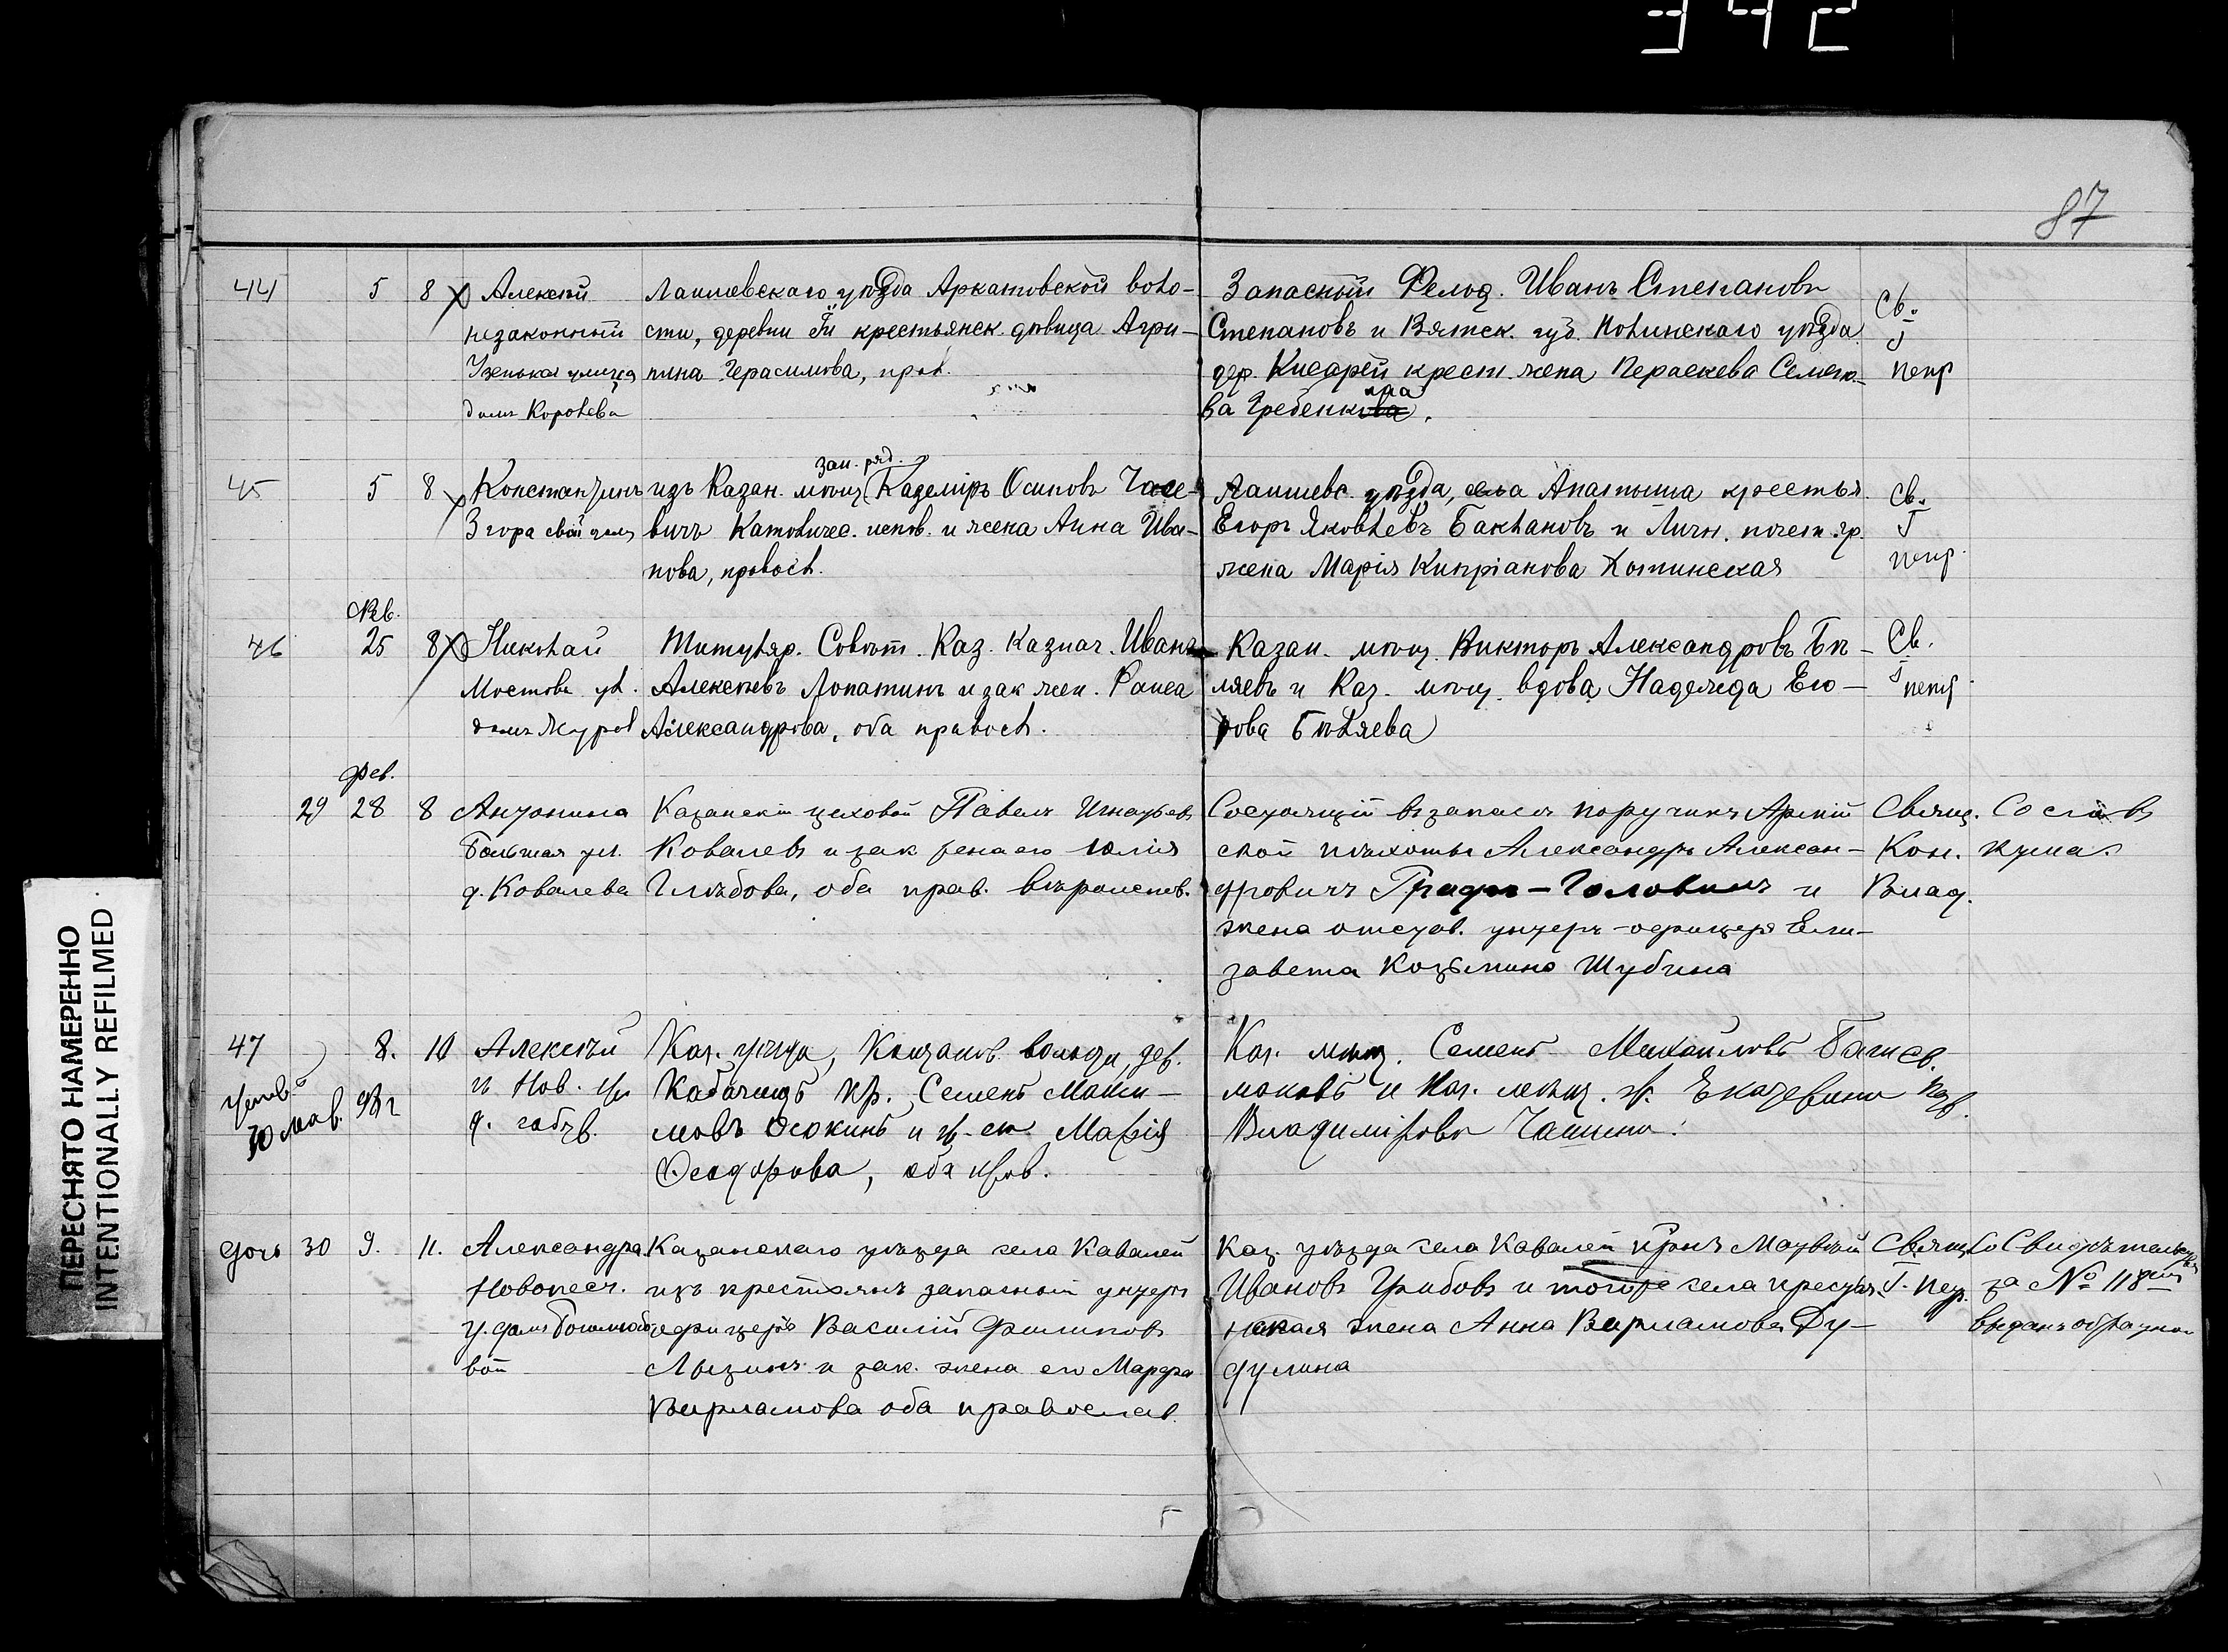 342
87
44 5 8 Алексѣй
незаконный
Узенькая улица
домъ Королева
Лаишевскаго уѣзда Аркатовской воло-
сти, деревни крестьянск. дѣвица Агри-
пина Герасимова, прав.
Запасный Фельд. Иванъ Степановъ
Степановъ и Вятск. губ. Нолинскаго уѣзда
дер. крест. жена Параскева Семено-
ва Гребенк
Св.
I
петр
45 5 8 Константинъ
3 гора свой домъ
зап. ряд.
изъ Казан. мѣщ. Каземіръ Осиповъ
вичъ Католичес. испов. и жена Анна Ива-
нова, правосл.
Лаишевс. уѣзда, села крестьян.
Егоръ Яковлевъ Баклановъ и Личн. почетн. гр.
жена Марія Кипріанова Хотинская
Св.
I
петр.
Янв.
46 25 8 Николай
Мостовъ ул.
домъ Журов
Титуляр. Совѣт. Каз. Казнач. Иванъ
Алексѣевъ Лопатинъ и зак жен. Раиса
Александрова, оба правосл.
Казан. мѣщ. Викторъ Александровъ Бѣ-
ляевъ и Каз. мѣщ. вдова Надежда Его-
рова Бѣляева
Св.
I петр.
Фев.
29 28 8 Антонина
Большая ул.
д. Ковалева
Казанскій цеховой Павелъ Игнатьевъ
Ковалевъ и зак жена его Юлія
Глѣбова, оба прав. вѣроиспов.
Состоящій въ запасѣ поручикъ Армій
ской пѣхоты Александръ Алексан-
дровичъ Гради-Головинъ и
жена отстав. унтеръ-офицера Ели-
завета Козьмина Шубина
Свящ.
Кон.
Влад.
Со словъ
кума.
47 8. 10 Алексѣй
Нов. ул
д.
30 мая. 98 г
Каз. уѣзда, волости, дер.
Кабачищъ кр. Семенъ Макси-
мовъ Осокинъ и ж-ею Марія
Ѳеодорова, оба прав.
Каз. мѣщ. Семенъ Михайловъ Баш
маковъ и Каз. мѣщ. ж. Екатерина
Владимірова Чашина.
Св.
дочь 30 9. 11. Александра
Новопесч.
у. домъ
вой
Казанскаго уѣзда села Кавалей
изъ крестьянъ запасный унтеръ
офицеръ Василій Филиповъ
Лызинъ и зак. жена его Марфа
Варламова оба православ.
Каз. уѣзда села Кавалей Матвѣй
Ивановъ Грибовъ и того же села крестьян-
ская жена Анна Варламова Ду-
дулина
Свящ.
I. Пет.
Свидѣтельство
за № 118
выданъ обратно
ПЕРЕСНЯТО НАМЕРЕННО
INTENTIONALLY REFILMED